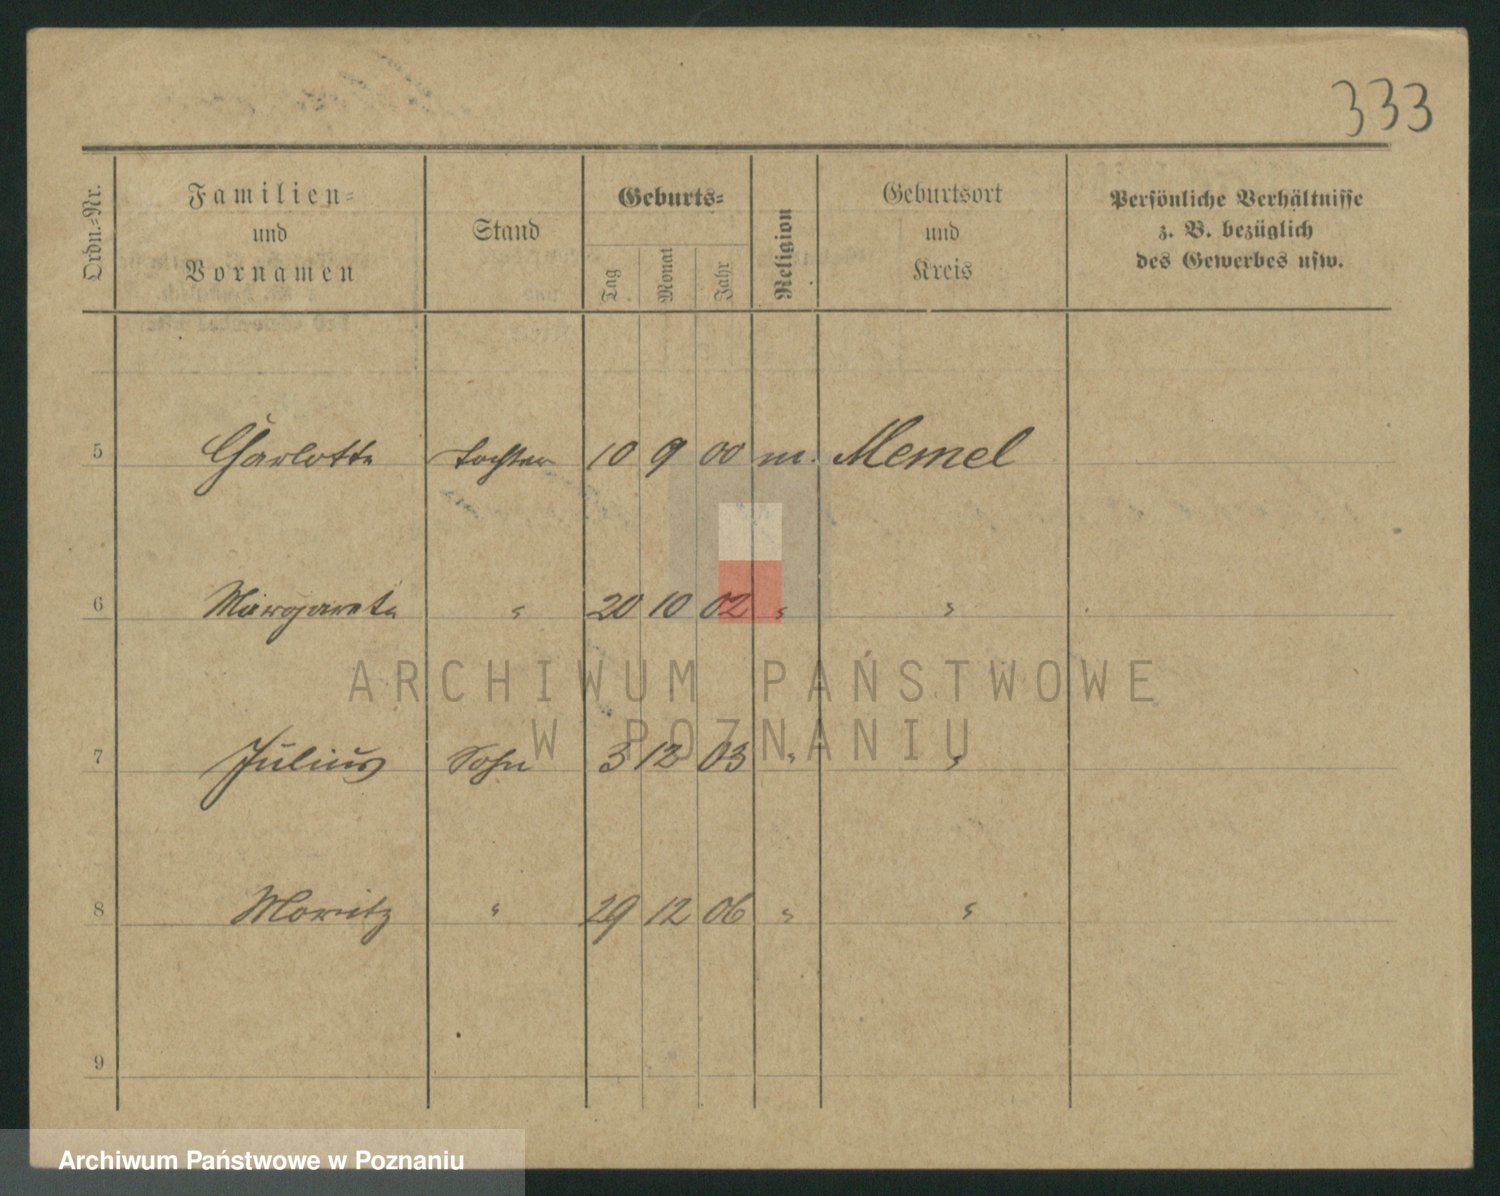 333
Ordn.-Nr.
Familien-
und
Vornamen
Stand
Geburts-
Tag
Monat
Jahr
Religion
Geburtsort
und
Kreis
Persönliche Verhältnisse
z. B. bezüglich
des Gewerbes usw.
5 Charlotte Tochter 10 9 00 m. Memel
6 Margarete " 20 10 02 " "
7 Julius Sohn 3 12 03 " "
8 Moritz " 29 12 06 " "
9
ARCHIWUM PAŃSTWOWE
W POZNANIU
Archiwum Państwowe w Poznaniu